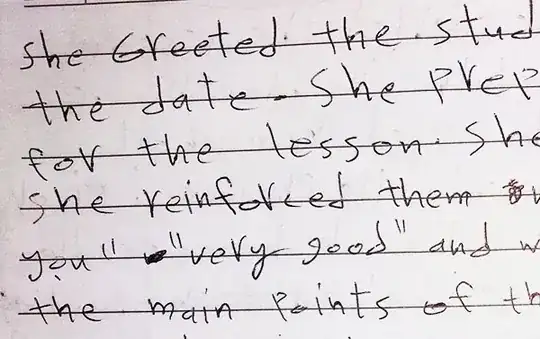 she Greeted the stud
the date. She prep
for the lesson. she
she reinforced them
you" "very good" and w
the main points of th